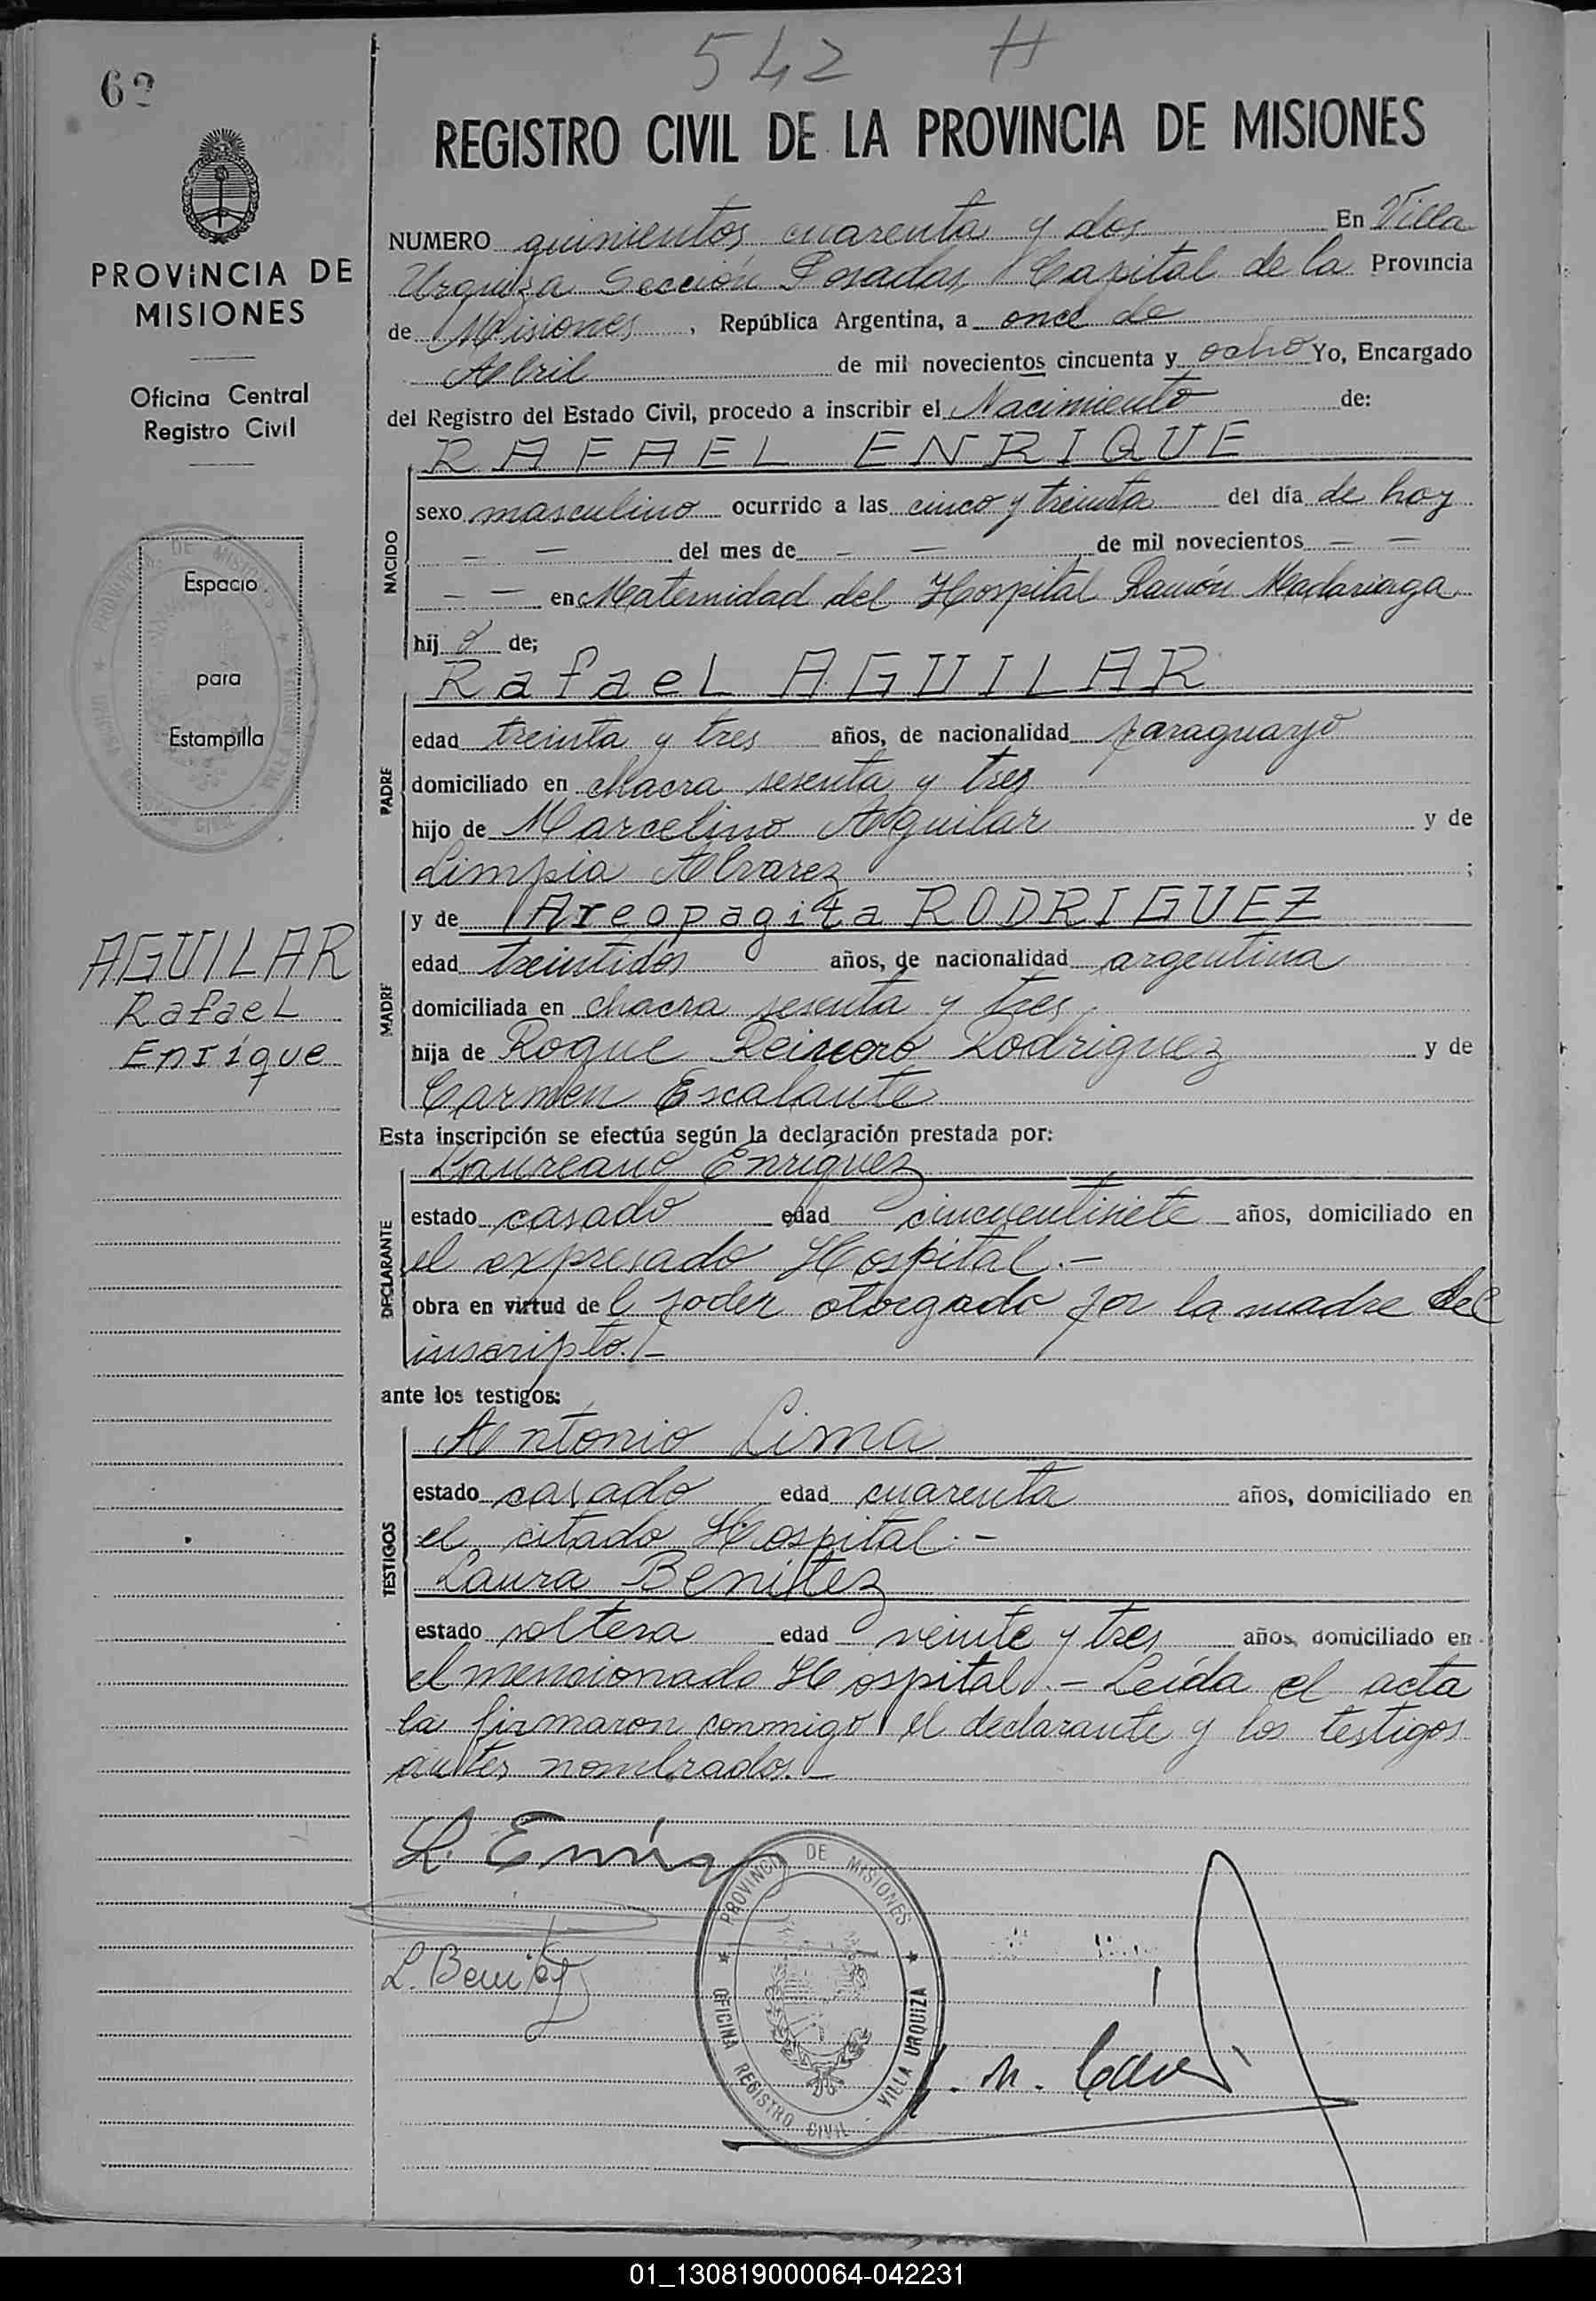 542 H
62
REGISTRO CIVIL DE LA PROVINCIA DE MISIONES
PROVINCIA DE
MISIONES
Oficina Central
Registro Civil
Espacio
para
Estampilla
AGUILAR
Rafael
Enrique
NUMERO quinientos cuarenta y dos En Villa
Urquiza Sección Posadas, Capital de la Provincia
de Misiones, República Argentina, a once de
Abril de mil novecientos cincuenta y ocho Yo, Encargado
del Registro del Estado Civil, procedo a inscribir el Nacimiento de:
RAFAEL ENRIQUE
NACIDO
sexo masculino ocurrido a las cinco y treinta del día de hoy
— — del mes de — — de mil novecientos — —
— — en Maternidad del Hospital Ramón Madariaga
hij o de;
Rafael AGUILAR
PADRE
edad treinta y tres años, de nacionalidad paraguayo
domiciliado en chacra sesenta y tres
hijo de Marcelino Aguilar y de
Limpia Alvarez ;
MADRE
y de Areopagita RODRIGUEZ
edad treintidos años, de nacionalidad argentina
domiciliada en chacra sesenta y tres
hija de Roque Rodriguez y de
Carmen Escalante
Esta inscripción se efectúa según la declaración prestada por:
DECLARANTE
Laureano Enriquez
estado casado edad cincuentisiete años, domiciliado en
el expresado Hospital.-
obra en virtud de l poder otorgado por la madre del
inscripto.-
ante los testigos:
TESTIGOS
Antonio Lima
estado casado edad cuarenta años, domiciliado en
el citado Hospital.-
Laura Benitez
estado soltera edad veinte y tres años, domiciliado en
el mencionado Hospital.- Leída el acta
la firmaron conmigo el declarante y los testigos
antes nombrados.-
L. Enriquez
L. Benitez
PROVINCIA DE MISIONES
OFICINA REGISTRO CIVIL - VILLA URQUIZA
01_130819000064-042231